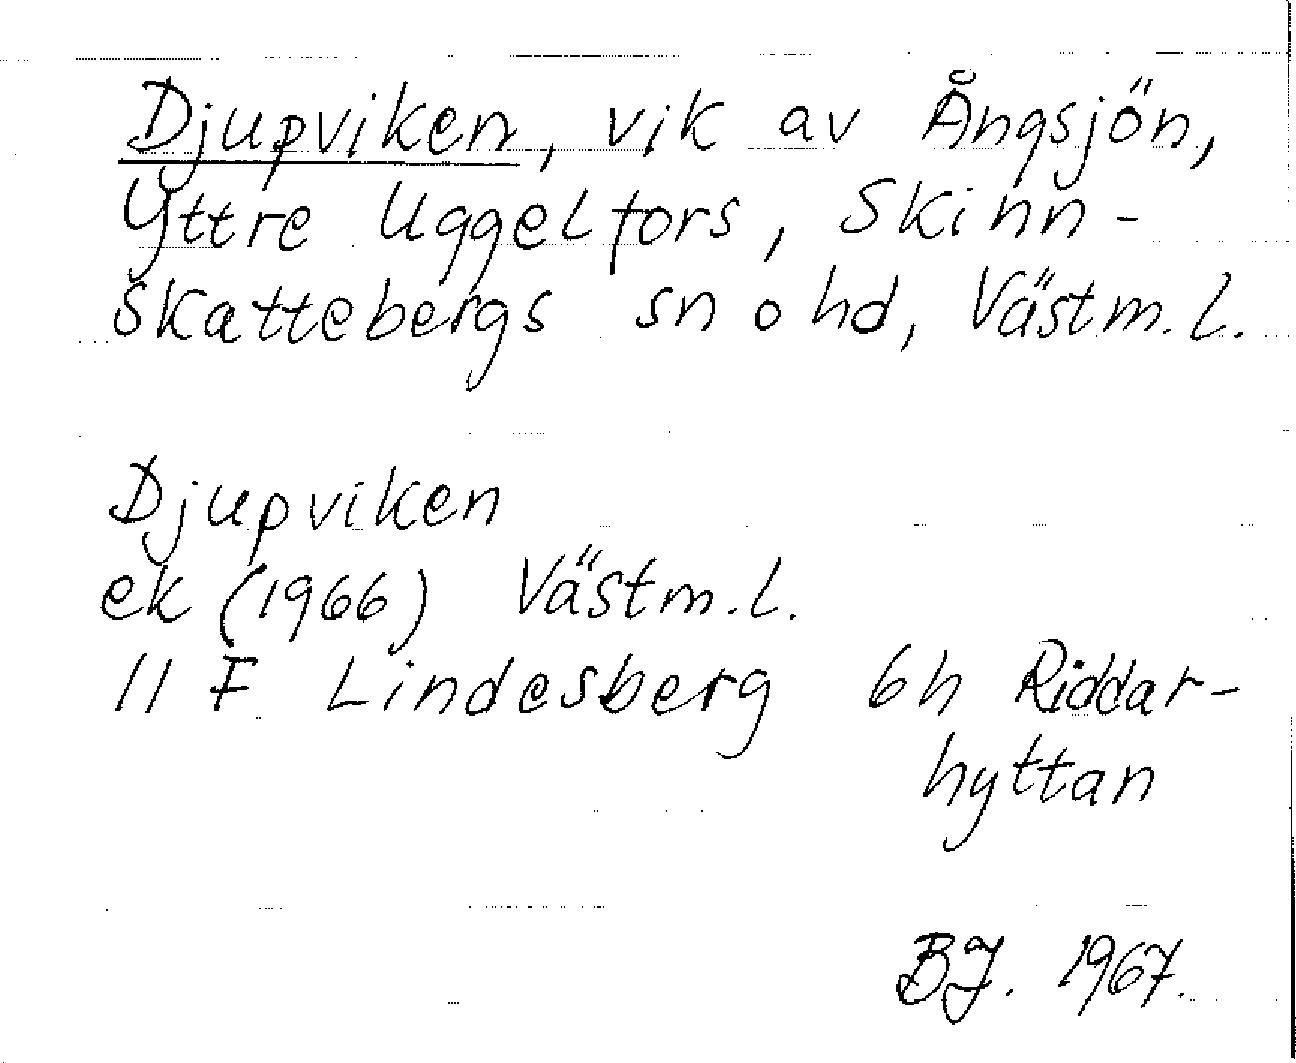 Djupviken, vik av Ångsjön,
Yttre Uggelfors, Skinn-
skattebergs sn o hd, Västm. l.
Djupviken
ek (1966) Västm. l.
11 F Lindesberg 6h Riddar-
hyttan
BJ. 1967.